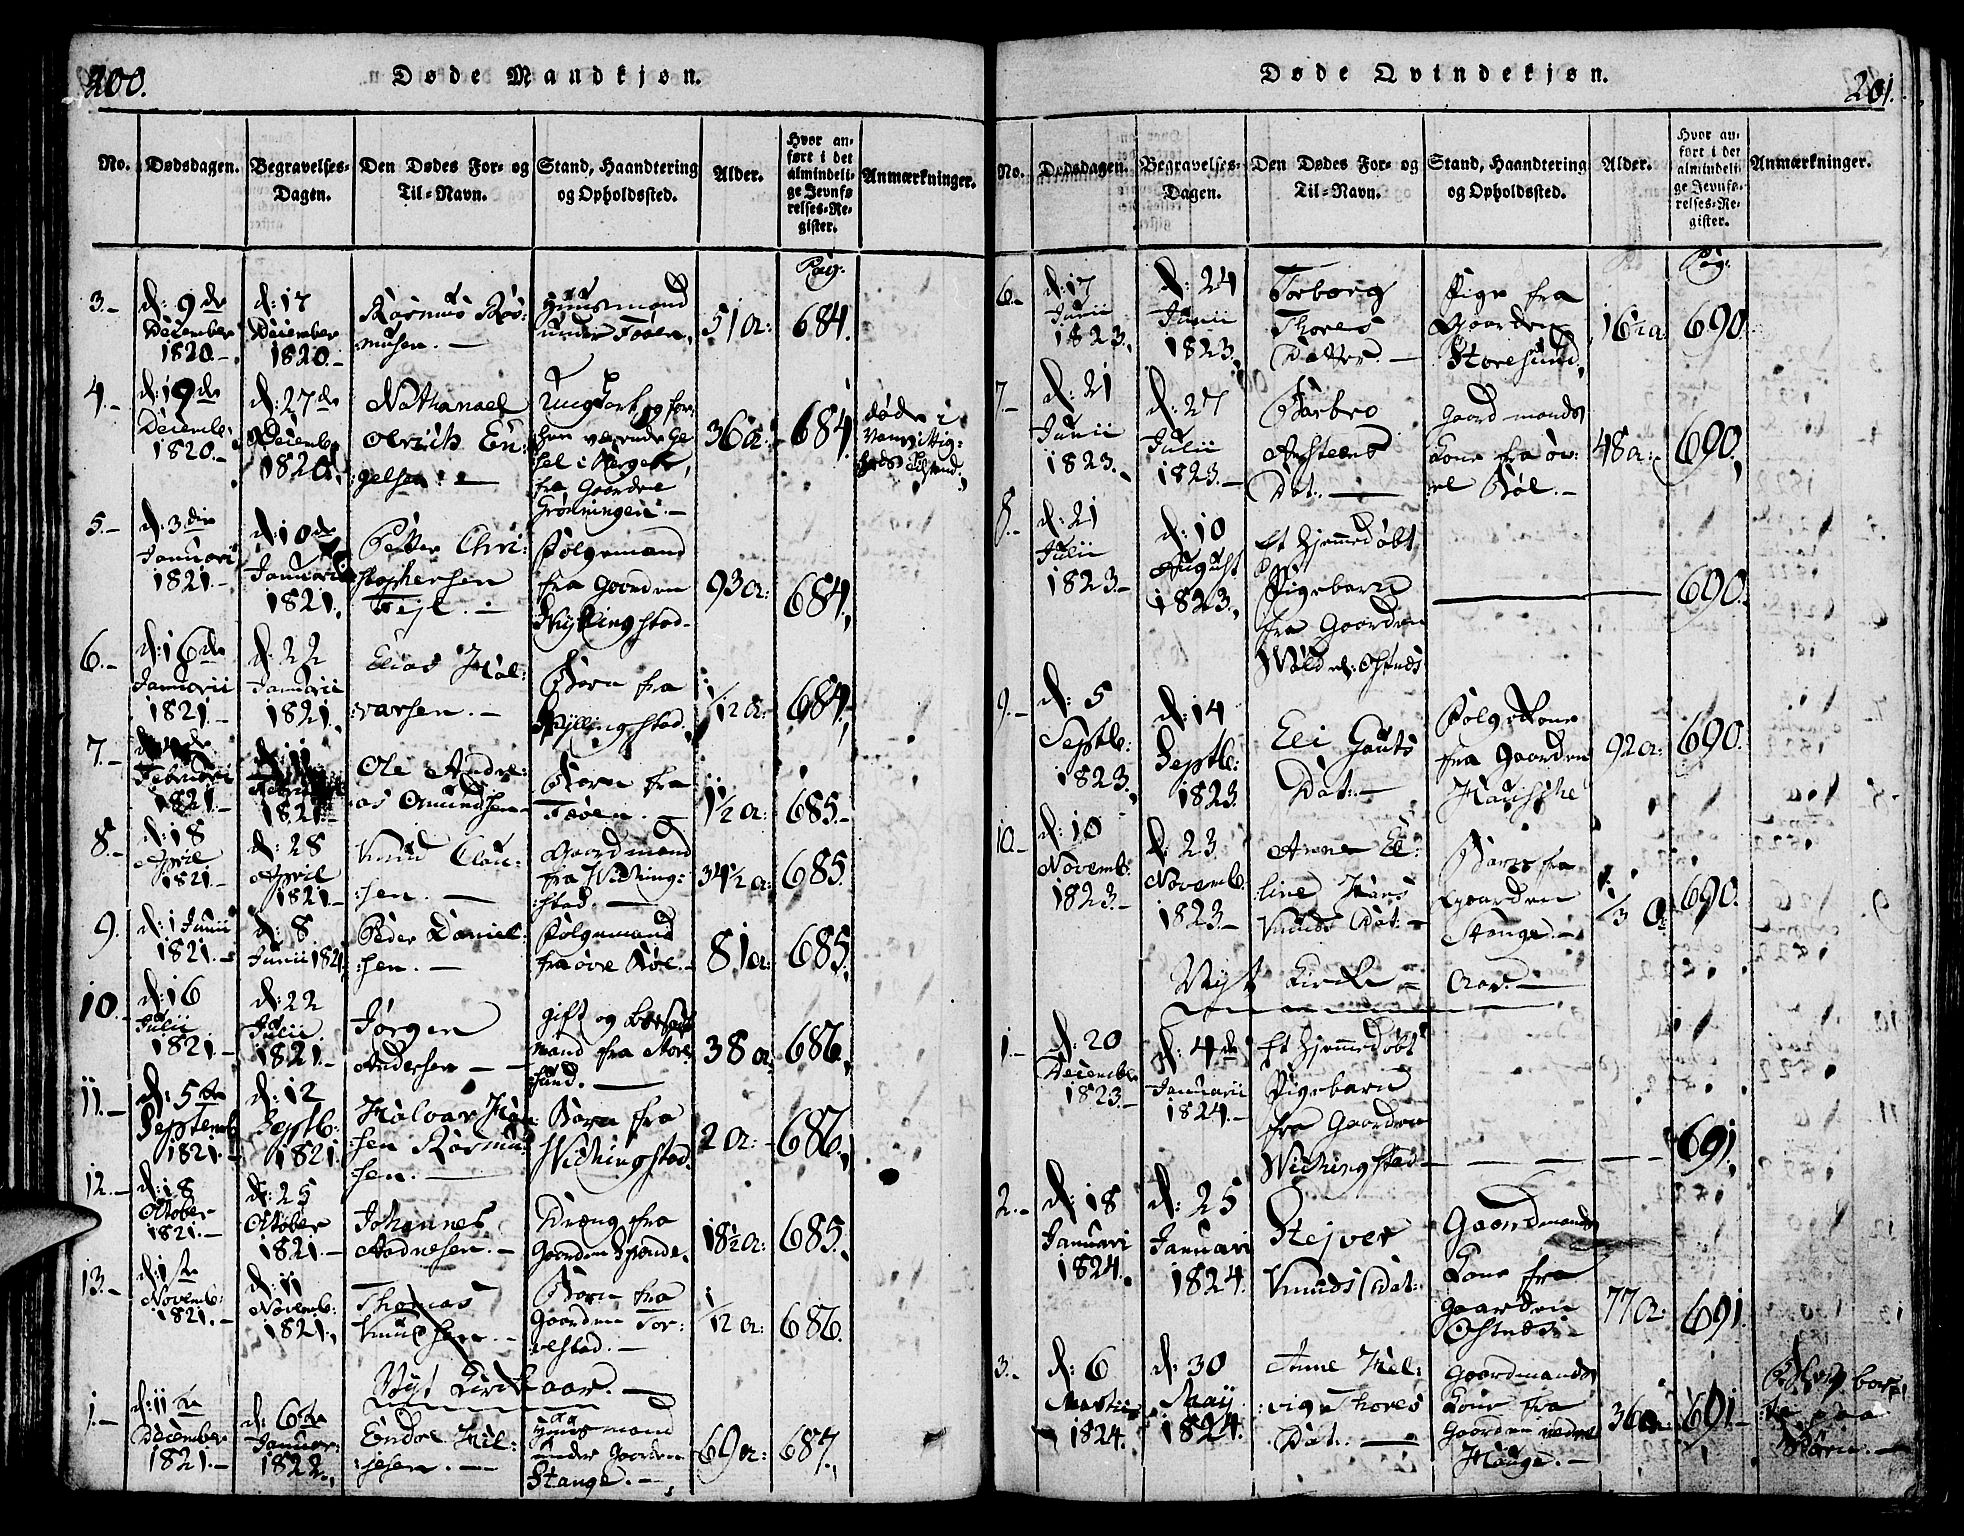 200.
Døde Mandkjøn.
No.
Dødsdagen.
Begravelses-
Dagen.
Den Dødes For- og
Til-Navn.
Stand, Haandtering
og Opholdssted.
Alder.
Hvor an-
ført i det
almindeli-
ge Jevnfø-
relses-Re-
gister.
Anmærkninger.
Pag:
3.-
d: 9de
December
1820.-
d: 17
December
1820.-
Rasmus Ras-
musen. -
Huusmand
under Føøen.
51 a:
684.
4.-
d: 19de
Decemb:
1820.-
d: 27de
Decemb:
1820.
Nathanael
Olrich En-
gelsen. -
fra Gaarden
Grønningen. -
36 a:
684
døde i
5.-
d: 3die
Januari
1821.-
d: 10de
Januarii
1821.
Petter Chri-
stophersen
Fejl. -
Følgemand
fra Gaarden
93 a:
684.
6.-
d: 16de
Januarii
1821.-
d: 22
Januarii
1821.
Elias Hal-
varsen. -
Barn fra
1/12 a:
684.
7.-
Februari
1821.-
d: 11
1821.-
Ole Andre-
as Omundsen -
Barn fra
Føøen. -
1 1/2 a:
685.-
8.-
d: 18
April
1821.-
d: 28
April
1821.-
Knud Clau-
sen. -
Gaardmand
fra Viching-
stad. -
34 1/2 a:
685.
9.
d: 1 Junii
1821.-
d: 8
Junii 1821.
Peder Daniel-
sen. -
Følgemand
fra øvre Bøe. -
81 a:
685.
10.-
d: 16
Julii
1821.-
d: 22
Julii
1821.-
Jørgen
Andersen -
gift og
mand fra Store
sund. -
38 a
686.
11.-
d: 5te
Septemb
1821.-
d: 12
Septb:
1821
Halvar Han-
sen Rasmu-
sen. -
Barn fra
Vichingstad.
2 a:
686.
12.-
d: 18
Octtober
1821.-
d: 25
Octtober
1821.-
Johannes
Aadnesen. -
Dreng fra
Gaarden Spande.
18 1/2 a:
685.
13.-
d: 1ste
Novemb:
1821.-
d: 11
Novemb:
1821.
Thomas
Knudsen. -
Barn fra
Gaarden Tor-
vestad. -
1/12 a:
686.
Nyt Kirkeaar. -
1.-
d: 11te
December
1821.-
d: 6te
Januar:
1822.
Endre Hel-
gesen. -
Huusmand
under Gaarden
Stange. -
69 a:
687.
201.
Døde Qvindekjøn.
No.
Dødsdagen.
Begravelses-
Dagen.
Den Dødes For- og
Til-Navn.
Stand, Haandtering
og Opholdssted.
Alder.
Hvor an-
ført i det
almindeli-
ge Jevnfø-
relses-Re-
gister.
Anmærkninger.
Pag:
6.-
d: 17
Junii
1823.
d: 24
Junii
1823.
Torborg
Thores
Datter. -
Pige fra
Gaarden
Storesund.
16 1/2 a
690.
7.-
d: 21
Junii
1823.
d: 27
Julii
1823.-
Barbro
Dat. -
Gaardmands
Kone fra øv-
re Bøe. -
48 a:
690.
8.-
d: 21
Julii
1823.-
d: 10
August
1823.
Et hjemmedøbt
Pigebarn
fra Gaarden
690.
9.-
d: 5
Septb:
1823.
d: 14
Septb:
1823.
Eli Gauts
Dat: -
Følgekone
fra Gaarden
92 a:
690.
10.-
d: 10
Novemb.
1823.-
d: 23
Novemb.
1823.-
Anne El-
line Hans
Knuds Dat: -
Barn fra
Gaarden
Stange. -
1/3 a:
690.
Nyt Kirke - Aar. -
1.-
d: 20
December
1823.-
d: 4de
Januarii
1824.-
Et hjemmedøbt
Pigebarn
fra Gaarden
Vichingstad -
691.
2.-
d: 18
Januari
1824.
d: 25
Januari
1824.
Knuds Dat:
Gaardmands
Kone fra
Gaarden
Østnes. -
77 a:
691.
3.-
d: 6
1824.
d: 30
Maij
1824.
Anne Hel-
vige Thores
Dat: -
Gaardmands
Kone fra
Gaarden nedre
Hauge. -
36 a:
691.-